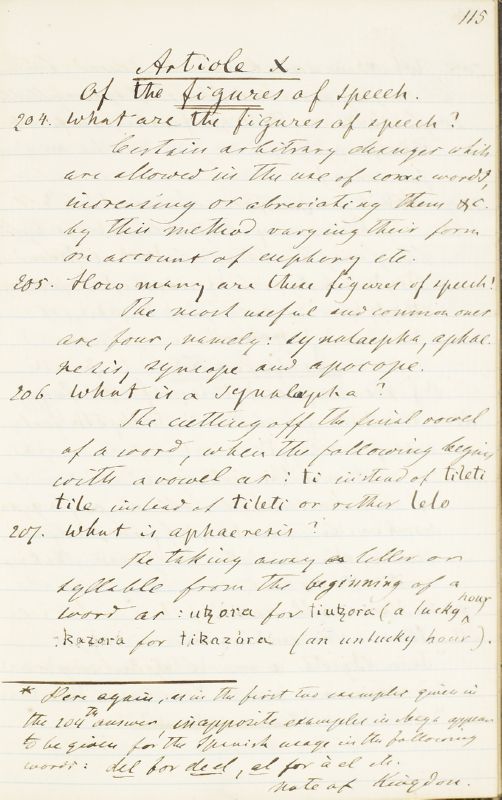 115
Article X
Of the figures of speech.
204. What are the figures of speech?
Certain arbitrary changes which
are allowed in the use of some words,
increasing or abreviating them &c.
by this method varying their form
on account of euphony etc.
205. How many are these figures of speech?
The most useful and common ones
are four, namely: synalaepha, aphae-
resis, syncope and apocope.
206. What is a synalepha?
The cutting off the final vowel
of a word, when the following begins
with a vowel as: ti instead of tileti
tile instead of tileti or rather lelo
207. What is aphaeresis?
The taking away a letter or
syllable from the beginning of a
word as: utzora for tiutzora (a lucky hour
:kazora for tikazóra (an unlucky hour).
* Here again, as in the first two examples given in
the 204th answer, inapposite examples in Maya appear
to be given for the Spanish usage in the following
words: del for de el, al for à el etc.
note of Kingdon.